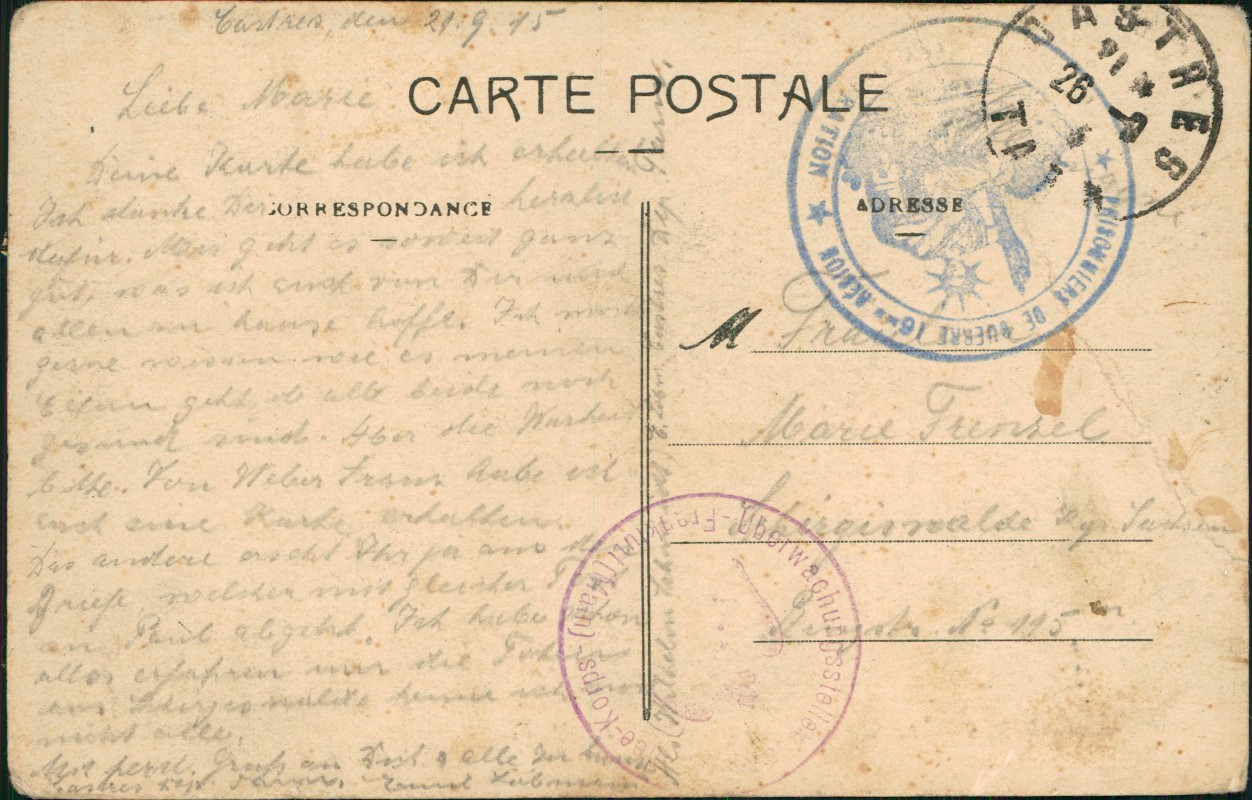 Castres, den 21.9.15
CARTE POSTALE
Liebe Marie
Deine Karte habe ich erhalten
Ich danke Dir herzlich
dafür. Mir geht es soweit ganz
gut, was ich auch von Dir und
allen zu hause hoffe. Ich möcht
gerne wissen wie es meinen
Eltern geht ob alle beide noch
gesund sind. Aber die Warheit
bitte. Von Weber Franz habe ich
auch eine Karte erhalten.
Das andere erseht Ihr ja aus
Briefe, welcher mit gleicher
an Paul abgeht. Ich habe schon
alles erfahren nur die Toten
aus Schirgiswalde kenne ich noch
nicht alle.
Mit herzl. Gruß an Dich & alle zu haus
Castres Dep. Tarn.
CORRESPONDANCE
ADRESSE
M
Marie Frenzel
Schirgiswalde Kgr. Sachsen
No 195
CASTRES
TARN
26
PRISONNIERS DE GUERRE 16me RÉGION
Überwachungsstelle
Armee-Korps-
Frankfurt (Main)